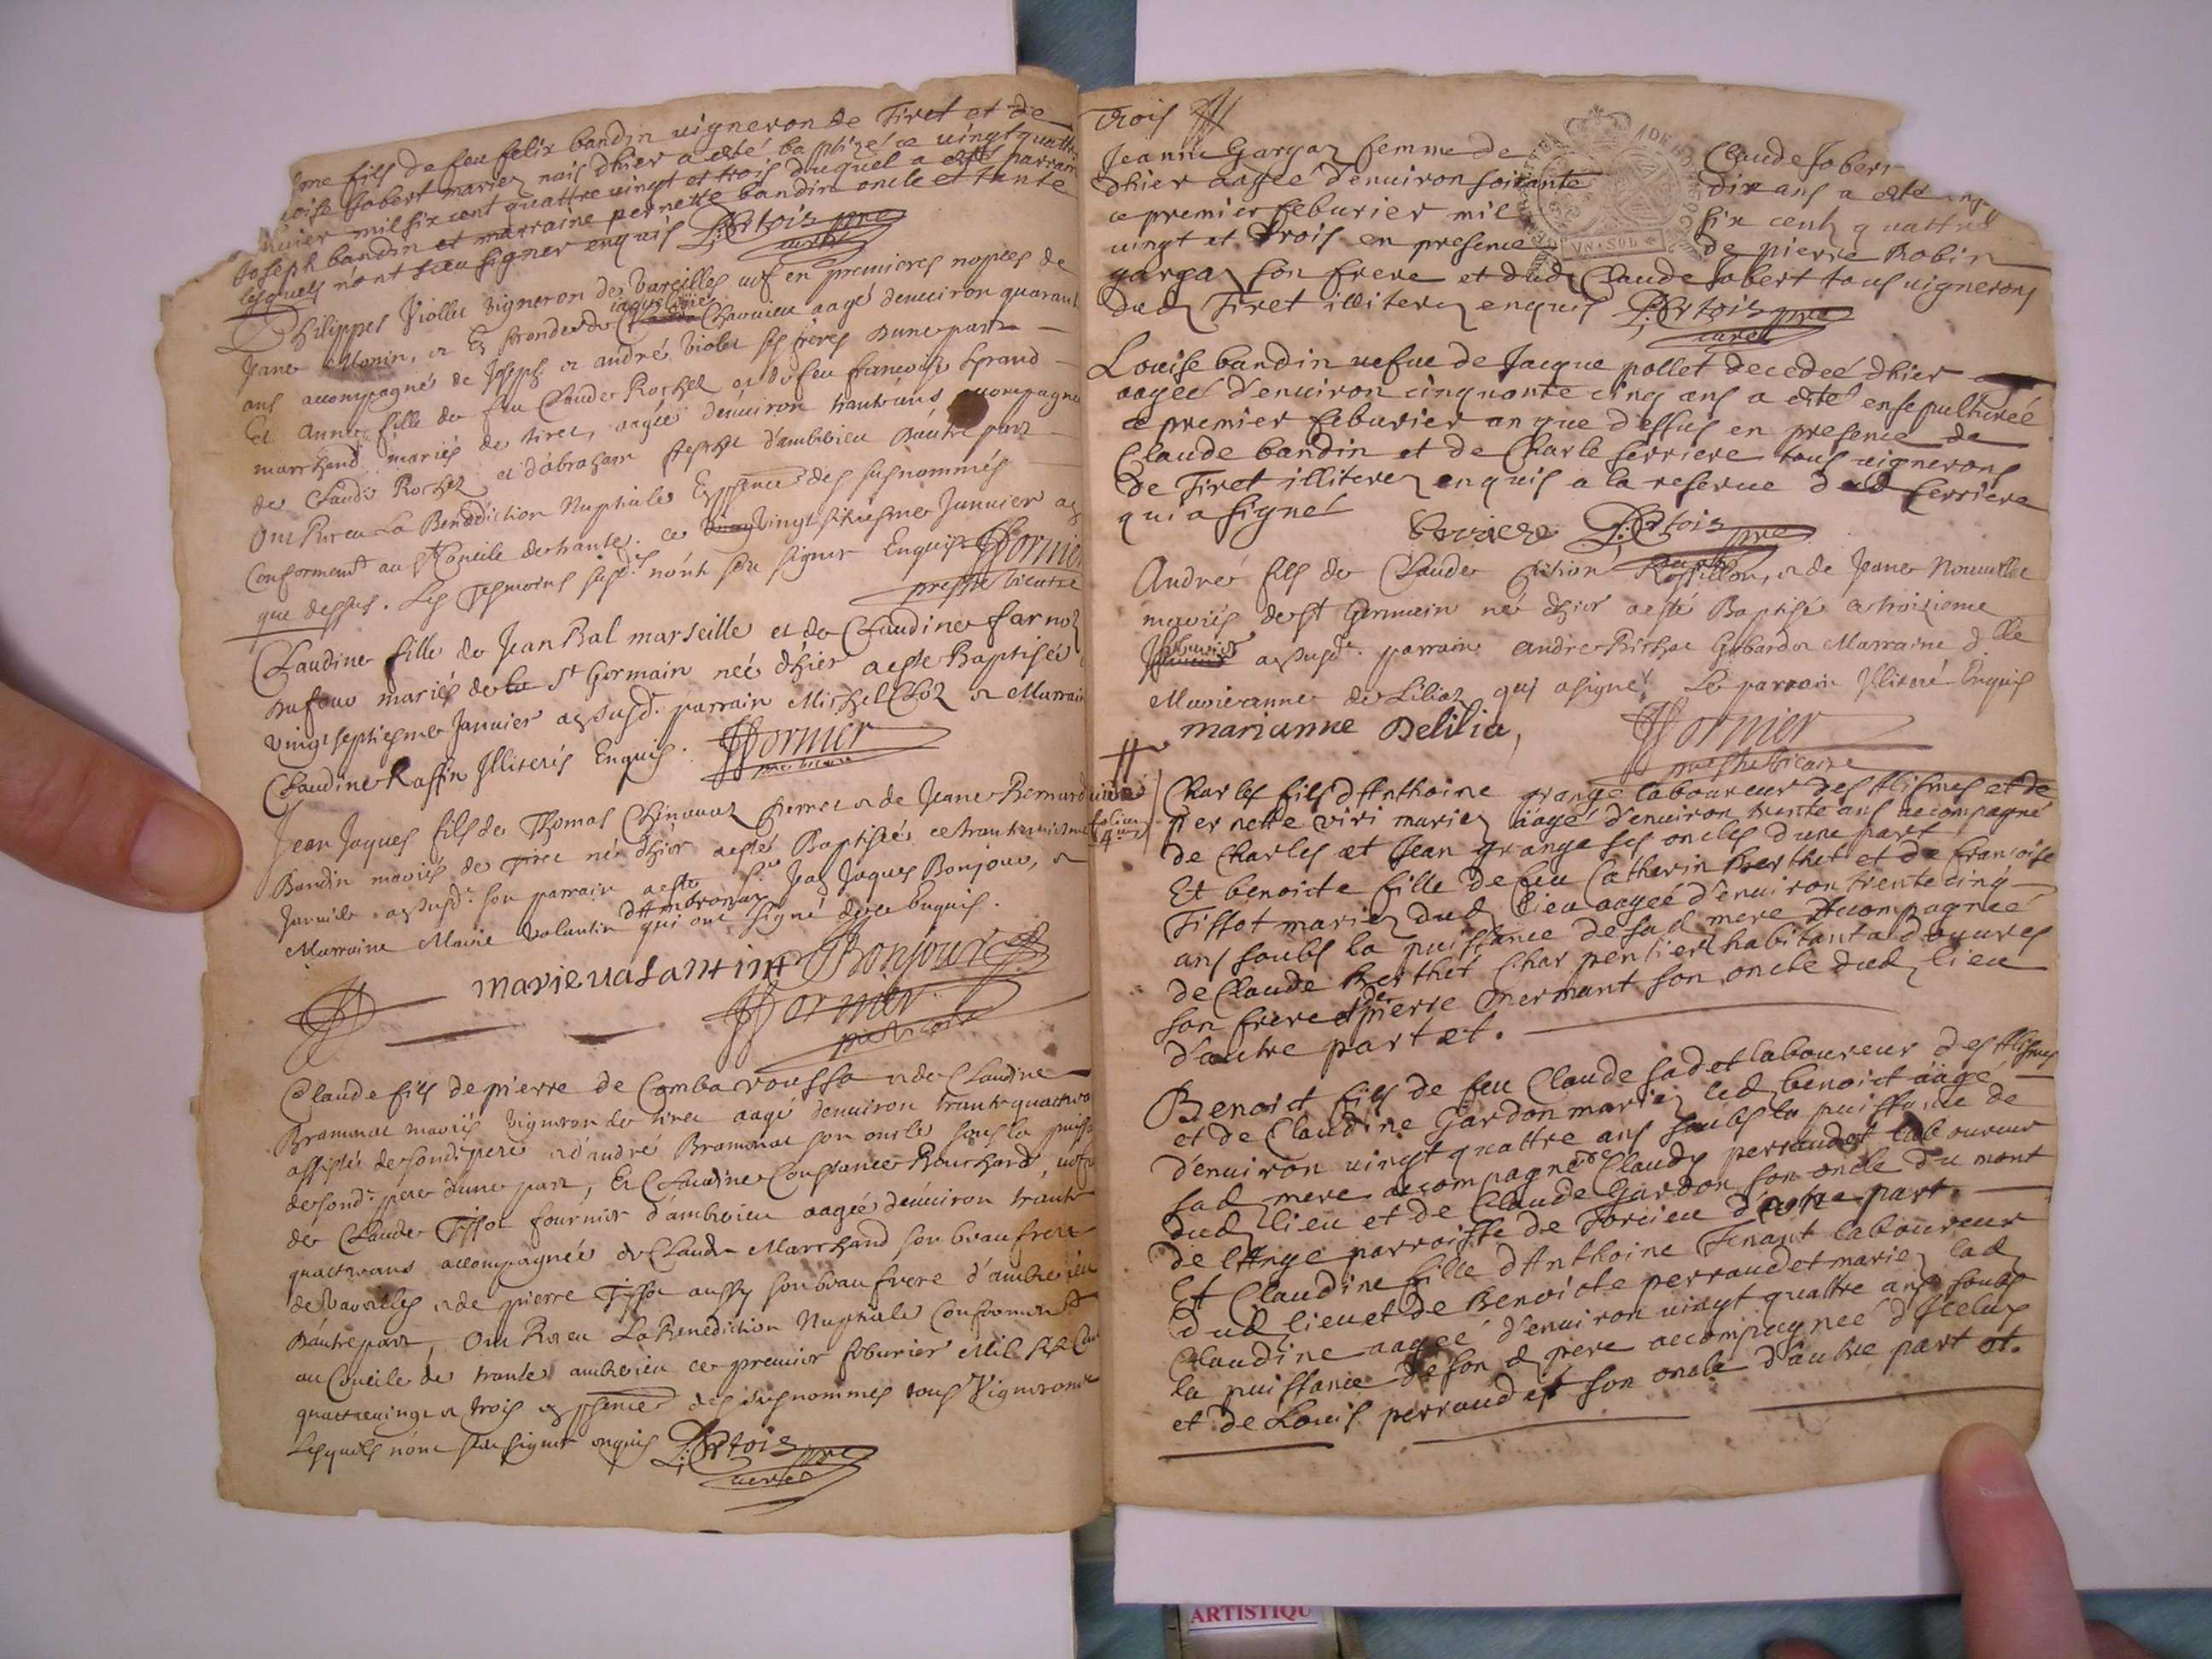 fils de feu felix bandin vigneron de Tiret et de
Jobert mariez nais dhier a esté baptizé ce vingt quattre
mil six cent quattre vingt et trois duquel a esté parrain
Joseph bandin et marraine pernette bandin oncle et tante
lesquels n'ont sceu signer enquis
Philippes Viollet Vigneron des Vareilles vef en premieres nopces de
Jeane Monin, aagé denuiron quarante
ans accompagné de Joseph et andré Violet ses freres Dune part
Et Anne fille de feu Claude Rochet et de feu francoise
marchand mariés de tiret, aagée denuiron trante ans accompagnée
de Claude Rochet et d'abraham d'ambrieu Dautre part
Ont Receu La Benediction Nuptiale En psence des susnommés
Conformemt au st Concile de trante. ce vingt sixiesme Januier
que dessus. Les Tesmoins susd. nont sceu signer Enquis Fornier
prestre vicaire
Claudine fille de Jean Bal marseille et de Claudine
Dufour mariés de St Germain née dhier a esté Baptisée
vingt septiesme Januier parrain Michel et Marraine
Claudine Raffin Illiterés Enquis. Fornier
Jean Jaques fils de Thomas et de Jeane Bernard
Bandin mariés de né dhier a esté Baptisé ce
Januier son parrain a esté Sr Jean Jaques Bonjour, et
d'Ambronay
Marraine Marie Valantin qui ont signé Enquis.
marie valantin Bonjour
Fornier
Claude fils de pierre de Comba rousse et de Claudine
Bramerel mariés Vigneron de tiret aagé denuiron trante quattre
assisté de sondt pere et d'andré Bramerel son oncle sous la
de sond. pere dune part, Et Claudine Constance Bouchard, vefve
de Claude Tissot fournier d'ambrieu aagée denuiron trante
quattre ans accompagnée de Claude Marchand son beau frere
de Vareilles et de pierre Tissot aussy son beau frere d'ambrieu
Dautre part, Ont Receu La Benediction Nuptiale Conformemt
au Concile de trante ambrieu ce premier feburier Mil six Cent
quattreuingt et trois en psence des susnommes tous Vignerons
Lesquels n'ont sceu signer enquis
trois
Jeanne Gargaz femme de Claude Jobert
dhier aagée d'enuiron soixante dix ans a esté
ce premier feburier mil six cents quattre
UN SOL
vingt et trois en presence de pierre Robin
gargaz son frere et dud Claude Jobert tous vignerons
dud Tiret illiterez enquis
Louise bandin vefue de Jacque pollet decedeé dhier
aageé d'enuiron cinquante cinq ans a esté ensepultureé
ce premier feburier an que dessus en presence de
Claude bandin et de Charle ferriere tous vignerons
de Tiret illiterez enquis a la reserue dud ferriere
qui a signé
André fils de Claude Rossillon, et de Jeane
mariés de st Germain né dhier a esté Baptisé ce troisieme
feburier parrain andre Marraine dlle
Marieanne de Liliaz qui a signé Le parrain Illiteré Enquis
marianne Delilia,
Fornier
prestre vicaire
Charles fils d'Anthoine grange laboureur des Alismes et de
pernette viri mariez aagé d'enuiron trente ans accompagné
de Charles et Jean grange ses oncles dune part
Et benoicte fille de feu Catherin Berthet et de francoise
Tissot mariez dud lieu aageé d'enuiron trente cinq
ans soubs la puissance de sad mere Accompagneé
de Claude Berthet Charpentier habitant a douures
son frere et de pierre mermant son oncle dud lieu
d'autre part et.
Benoict fils de feu Claude sadet laboureur des Alismes
et de Claudine Gardon mariez led benoict aagé
d'enuiron vingt quattre ans soubs la puissance de
sad mere accompagné de Claudy perraudet laboureur
dud lieu et de Claude Gardon son oncle du mont
de lAnge parroisse de Torcieu d'autre part.
Et Claudine fille d'Anthoine Tenant laboureur
dud lieu et de Benoicte perraudet mariez lad
Claudine aageé d'enuiron vingt quattre ans soubs
la puissance de son d pere accompagneé d'Iceluy
et de Louis perraudet son oncle d'autre part et.
ARTISTIQU